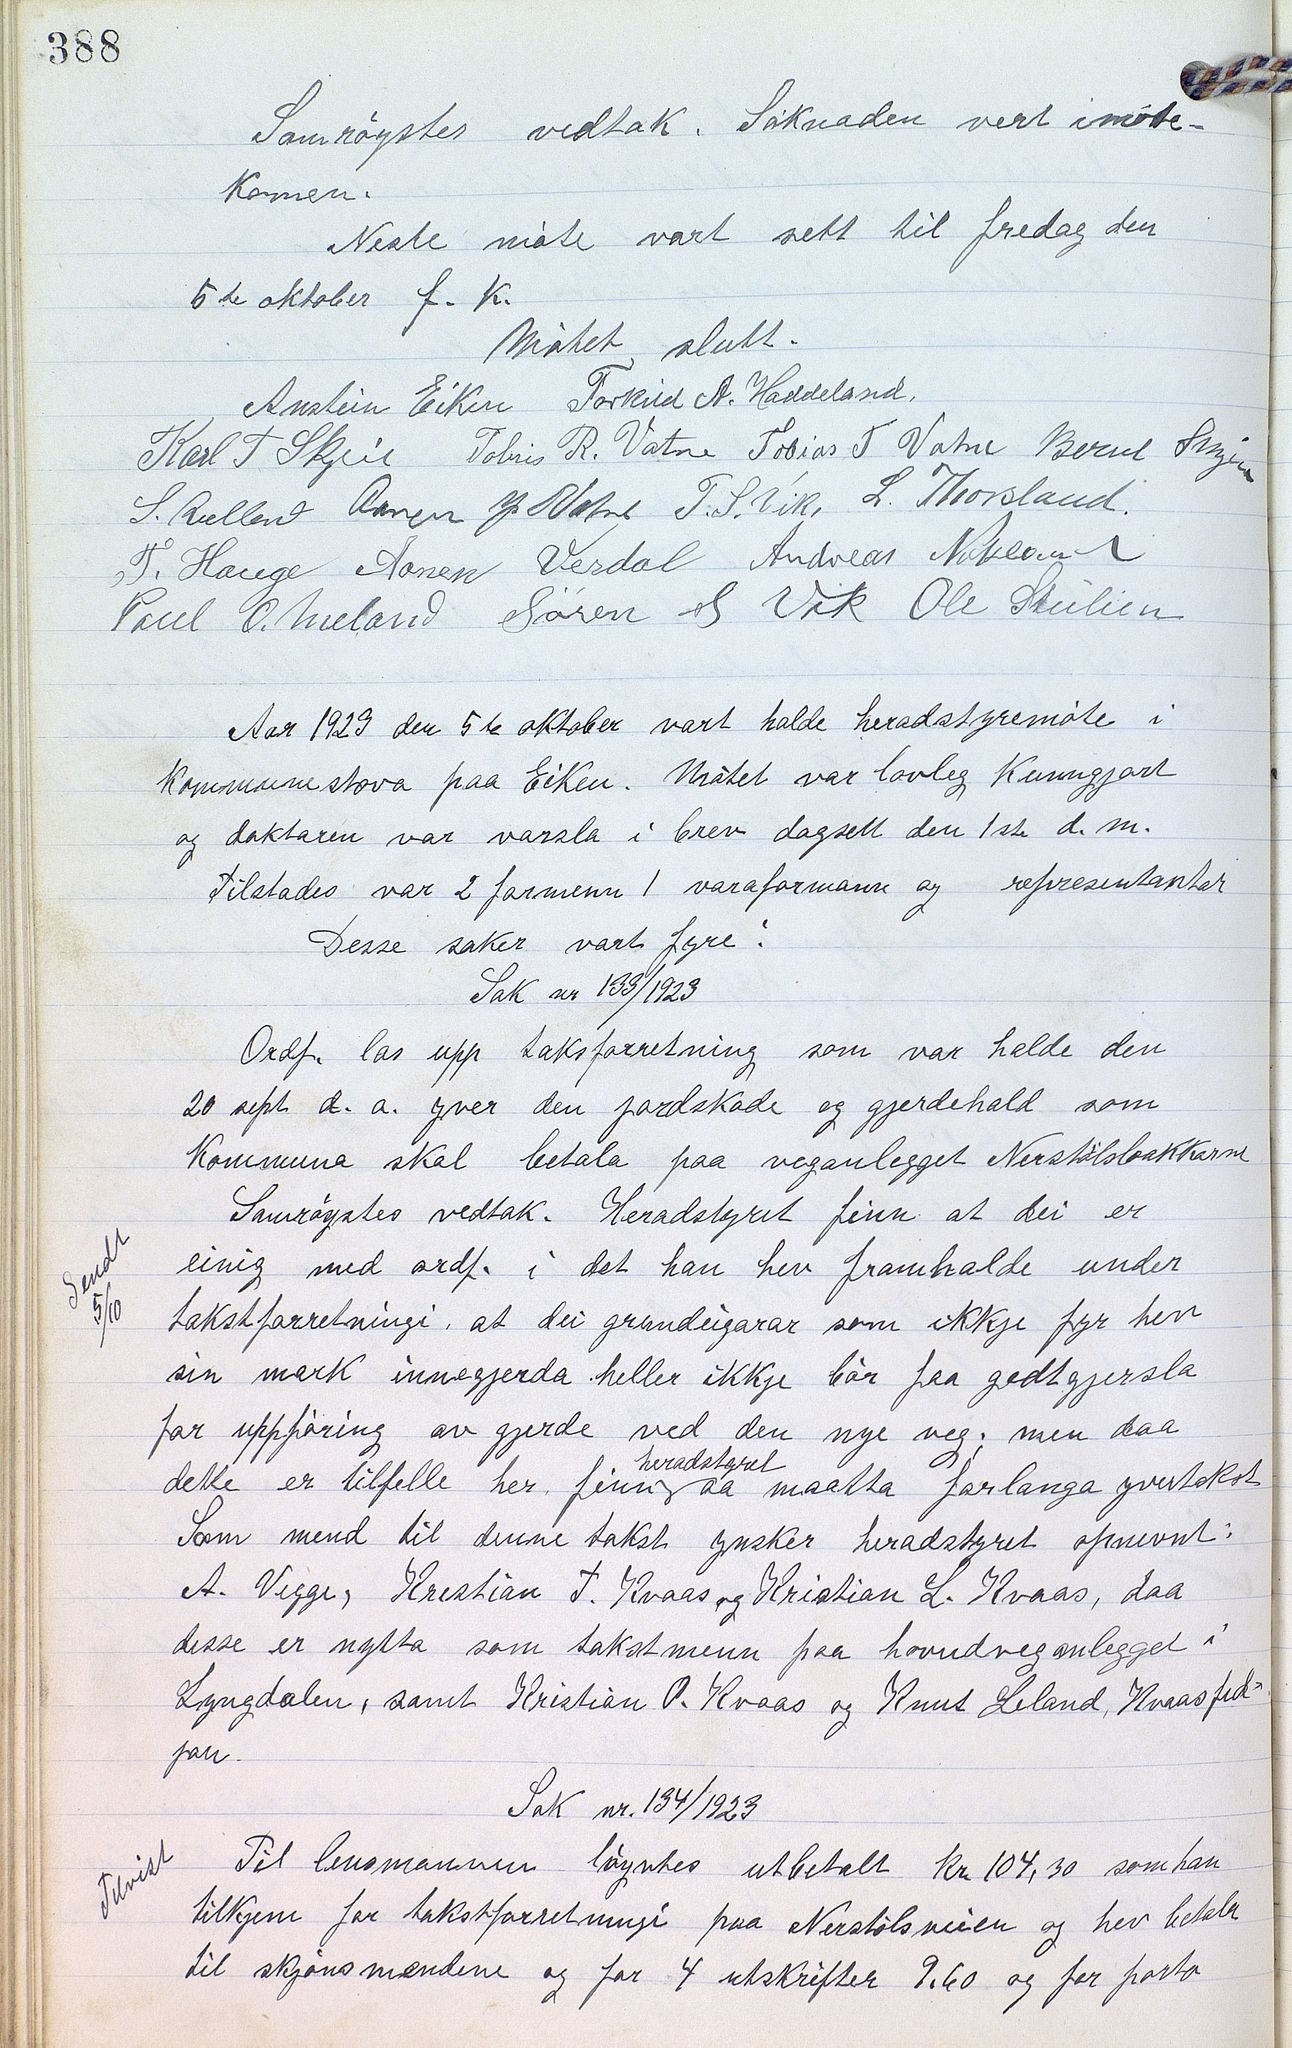 388
Samröystes vedtak. Söknaden vert imöte-
komen.
Neste möte vart sett til fredag den
5te oktober f. k.
Mötet slutt.
Anstein Eiken Torkild A. Haddeland.
Karl T Skjeie Tobias R. Vatne Tobias T Vatne Bernt
S. Rulland Aanen Vatne T. S. Vik. L. Thorsland.
T. Hauge Aanen Verdal Andreas
Paul O. Meland Sören S Vik Ole
Aar 1923 den 5te oktober vart halde heradstyremöte i
kommunestova paa Eiken. Mötet var lovleg kunngjort
og doktaren var varsla i brev dagsett den 1ste d. m.
Tilstades var 2 formenn 1 varaformann og representantar
Desse saker vart fyre:
Sak nr 133/1923
Ordf. las upp taksforretning som var halde den
20 sept d. a. yver den jordskade og gjerdehald som
kommuna skal betala paa veganlegget Nerstölsbakkarne
Samröystes vedtak. Heradstyret finn at dei er
einig med ordf. i det han hev framhalde under
takstforretningi, at dei grundeigarar som ikkje fyr hev
sin mark innegjerda heller ikkje bör faa godtgjersla
for uppföring av gjerde ved den nye veg; men daa
heradstyret
dette er tilfelle her, finn aa maatta forlanga yvertakst
Som mend til denne takst ynsker heradstyret opnevnt:
A. Vegge, Kristian T. Kvaas og Kristian L. Kvaas, daa
desse er nytta som takstmenn paa hovudveganlegget i
Lyngdalen, samt Kristian P. Kvaas og Knut Leland, Kvaasfid-
jan.
Sendt
5/10
Sak nr. 134/1923
Tilvist
Til lensmannen löyvtes utbetalt kr 104,30 som han
tilkjem for takstforretningi paa Nerstölsveien og hev betala
til skjönsmændene og for 4 utskrifter 9.60 og for porto